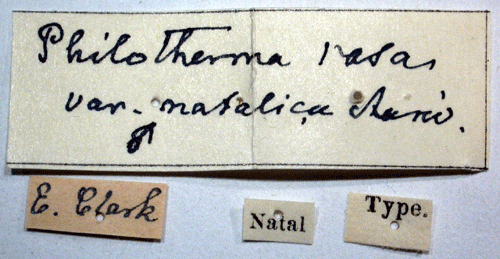 Philotherma rosa,
var. natalica Auriv.
♂
E. Clark
Natal
Type.